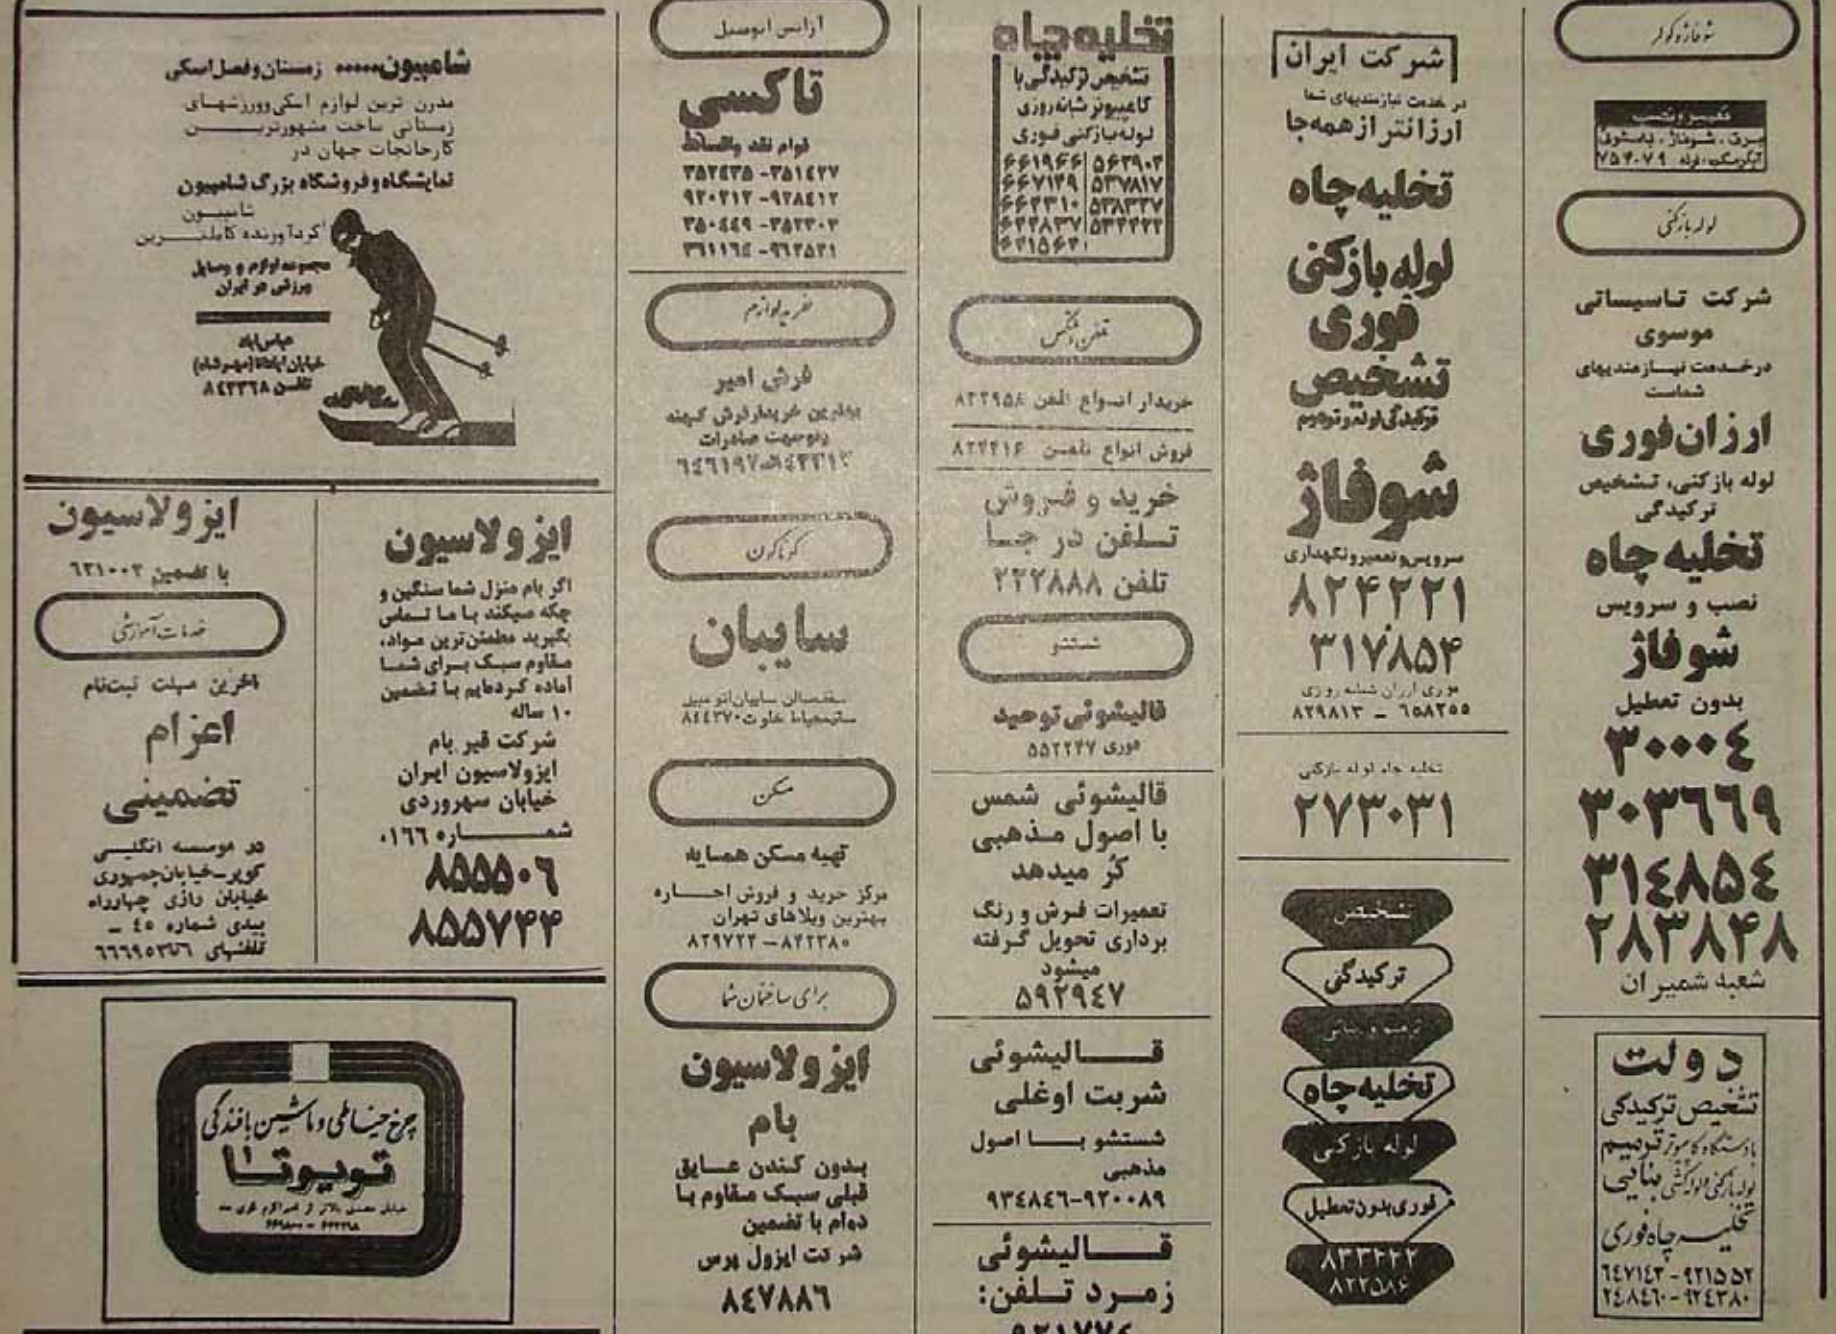 شوفاژ و کولر
تعمیر و نصب
برق . شوفاژ .
۷۵۴۰۷۹
لوله بازکنی
شرکت تاسیساتی
موسوی
درخدمت نیازمندیهای
شماست
ارزان فوری
لوله بازکنی، تشخیص
ترکیدگی
تخلیه چاه
نصب و سرویس
شوفاژ
بدون تعطیل
۳۰۰۰٤
۳۰۳٦٦۹
۳۱٤۸۵٤
۲۸۳۸۴۸
شعبه شمیران
دولت
تشخیص ترکیدگی
با دستگاه کامپیوتر ترمیم
لوله بازکنی و لوله کشی بنایی
تخلیه چاه فوری
٦٤۷۱٤۳ - ۹۲۱۵۵۲
۲٤۸٤٦۰ - ۹۲٤۳۸۰
شرکت ایران
در خدمت نیازمندیهای شما
ارزانتر از همه جا
تخلیه چاه
لوله بازکنی
فوری
تشخیص
ترکیدگی لوله و ترمیم
شوفاژ
سرویس و تعمیر و نگهداری
۸۲۴۲۲۱
۳۱۷۸۵۴
فوری ارزان شبانه روزی
۸۲۹۸۱۳ - ٦۵۸۲۵۵
تخلیه چاه لوله بازکنی
۲۷۳۰۳۱
تشخیص
ترکیدگی
ترمیم و بنائی
تخلیه چاه
لوله بازکنی
فوری بدون تعطیل
۸۳۳۲۲۲
۸۲۲۵۸۶
تخلیه چاه
تشخیص ترکیدگی با
کامپیوتر شبانه روزی
لوله بازکنی فوری
۶۶۱۹۶۶ ۵۶۳۹۰۳
۶۶۷۱۴۹ ۵۳۷۸۱۷
۶۶۲۳۱۰ ۵۳۸۳۲۷
۶۲۲۸۳۷ ۵۳۴۲۲۲
۶۲۱۵۶۲
تلفن و تلکس
خریدار انواع تلفن ۸۲۲۹۵۸
فروش انواع تلفن ۸۲۴۴۱۶
خرید و فروش
تلفن در جا
تلفن ۲۲۲۸۸۸
شستشو
قالیشوئی توحید
فوری ۵۵۲۲۴۷
قالیشوئی شمس
با اصول مذهبی
کُر میدهد
تعمیرات فرش و رنگ
برداری تحویل گرفته
میشود
۵۹۲۹٤۷
قالیشوئی
شربت اوغلی
شستشو با اصول
مذهبی
۹۳٤۸٤٦-۹۲۰۰۸۹
قالیشوئی
زمرد تلفن:
۹۲۱۷۷٤
آژانس اتومبیل
تاکسی
فوام نقد و اقساط
۳۵۲٤۳۵- ۳۵۱٤۲۷
۹۲۰۲۱۲- ۹۲۸٤۱۲
۳۵۰٤٤۹- ۳۵۲۳۰۳
۳٦۱۱٦٤-۹٦۲۵۳۱
خرید لوازم
فرش امیر
بهترین خریدار فرش کهنه
ونو جهت صادرات
٦٤٦۱۹۷-
گوناگون
سایبان
سایبان اتومبیل
حیاط خلوت ۸٤٤۳۷۰
مسکن
تهیه مسکن همسایه
مرکز خرید و فروش اجاره
بهترین ویلاهای تهران
۸۲۹۷۲۲-۸۴۲۳۸۰
برای ساختمان شما
ایزولاسیون
بام
بدون کندن عایق
قبلی سبک مقاوم با
دوام با تضمین
شرکت ایزول پرس
۸٤۷۸۸٦
شامپیون..... زمستان و فصل اسکی
مدرن ترین لوازم اسکی و ورزشهای
زمستانی ساخت مشهورترین
کارخانجات جهان در
نمایشگاه و فروشگاه بزرگ شامپیون
شامپیون
گردآورنده کاملترین
مجموعه لوازم و وسایل
ورزشی در ایران
عباس آباد
خیابان آپادانا (مهرشاه)
تلفن ۸٤۲۳٦۸
ایزولاسیون
اگر بام منزل شما سنگین و
چکه میکند با ما تماس
بگیرید مطمئن ترین مواد،
مقاوم سبک برای شما
آماده کرده‌ایم با تضمین
۱۰ ساله
شرکت قیر بام
ایزولاسیون ایران
خیابان سهروردی
شماره ۱٦٦.
۸۵۵۵۰٦
۸۵۵۷۴۴
ایزولاسیون
با تضمین ٦۳۱۰۰۲
خدمات آموزشی
آخرین مهلت ثبت‌نام
اعزام
تضمینی
در موسسه انگلیسی
کویر-خیابان جمهوری
خیابان رازی چهارراه
بیدی شماره ٤۵ -
تلفنهای
چرخ خیاطی و ماشین بافندگی
تویوتا
خیابان مصدق بالاتر از